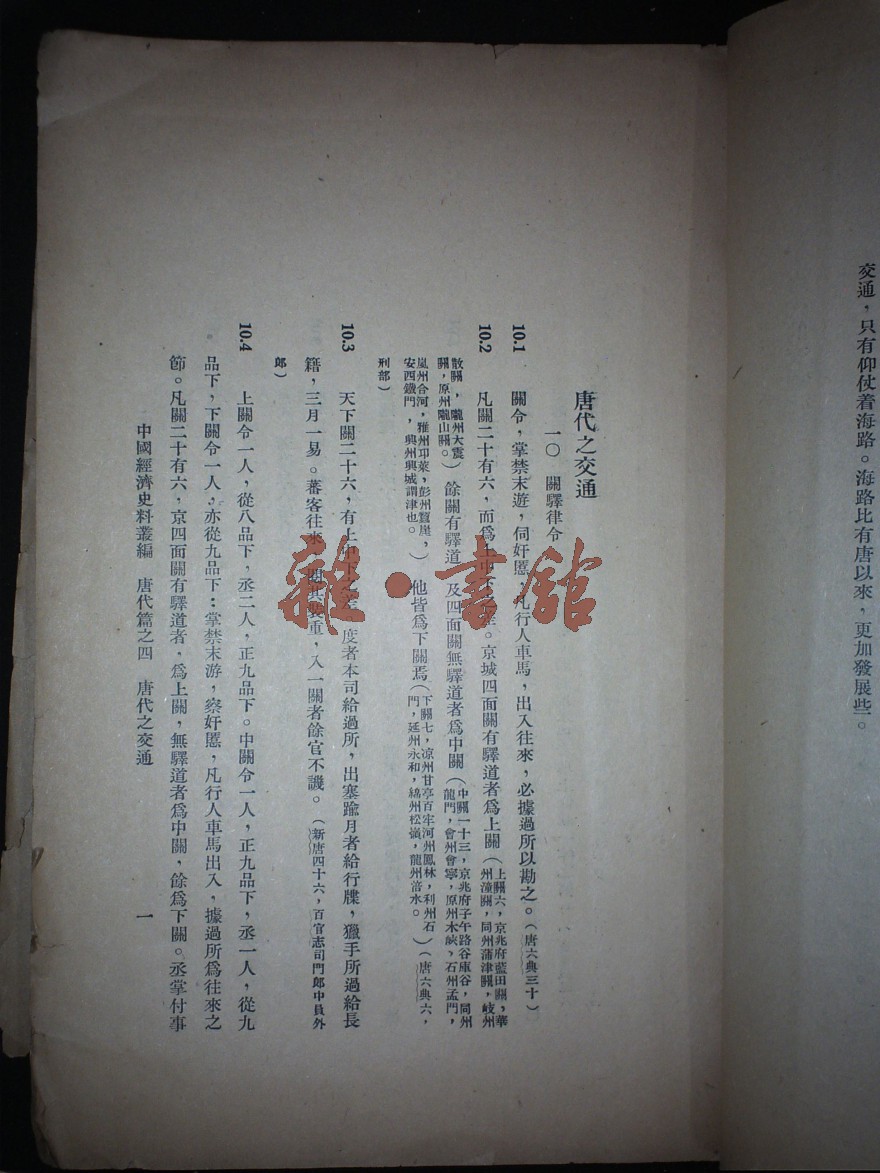 交通，只有仰仗着海路。海路比有唐以來，更加發展些。
唐代之交通
一〇　關驛律令
10.1　關令，掌禁末遊，伺奸慝，凡行人車馬，出入往來，必據過所以勘之。（唐六典三十）
10.2　凡關二十有六，而爲上中下之差。京城四面關有驛道者爲上關（上關六，京兆府藍田關，華州潼關，同州蒲津關，岐州
散關，隴州大震關，原州隴山關。）餘關有驛道，及四面關無驛道者爲中關（中關一十三，京兆府子午路谷庫谷，同州龍門，會州會寧，原州木峽，石州孟門，
嵐州合河，雅州邛萊，彭州蠶崖，安西鐵門，興州興城謂津也。）他皆爲下關焉（下關七，凉州甘亭百牢河州鳳林，利州石門，延州永和，綿州松嶺，龍州涪水。）（唐六典六，
刑部）
10.3　天下關二十六，有上中下之差。度者本司給過所，出塞踰月者給行牒，獵手所過給長
籍，三月一易。蕃客往來，閱其裝重，入一關者餘官不譏。（新唐四十六，百官志司門郎中員外
郎）
10.4　上關令一人，從八品下，丞二人，正九品下。中關令一人，正九品下，丞一人，從九
品下，下關令一人，亦從九品下：掌禁末游，察奸慝，凡行人車馬出入，據過所爲往來之
節。凡關二十有六，京四面關有驛道者，爲上關，無驛道者爲中關，餘爲下關。丞掌付事
中國經濟史料叢編　唐代篇之四　唐代之交通　一
雜·書館